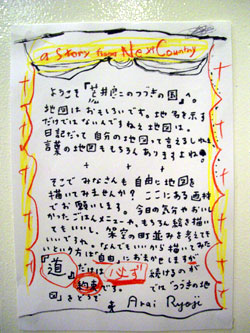 a story from Next Country
ようこそ『荒井良二のつづきの国』へ。
地図はおもしろいです。地名を示す
だけではないんですねえ地図は。
日記だって自分の地図って言えるしそれ
言葉の地図もちろんありますよね。
そこでみなさんも自由に地図を
描いてみませんか？ここにある画材
でお願いします。今日の気分やおいし
かったごはんメニューや、もちろん絵を描い
てもいいし、架空の町並みを考えても
いいですね。なんでもいいから描いてみた
いという方は自由におまかせしますが
『道』だけは必ず続けるのが
約束です。では『つづきの地
図』をどうぞ
Arai Ryoji